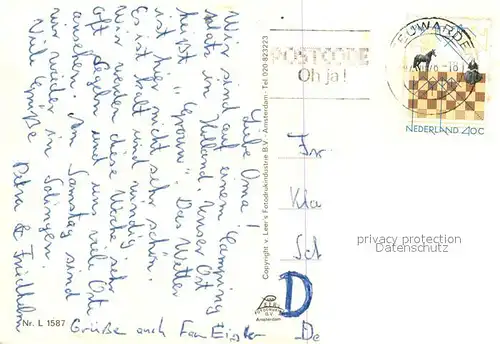 Liebe Oma!
Wir sind auf einem Camping
platz in Holland. Unser Ort
heißt "Grouw". Das Wetter
ist hier nicht sehr schön.
Es ist kalt und windig.
Wir werden diese Woche sehr
oft segeln und uns viele Orte
ansehen. Am Samstag sind
wir wieder in Solingen.
Viele Grüße
Petra & Friedhelm
Nr. L 1587
Grüße auch Fam
Copyright v. Leer's Fotodrukindustrie B.V. - Amsterdam - Tel. 020-823223
Amsterdam
POSTCODE
Oh ja!
EUWARDE
NEDERLAND 40C
Fr.
Kla
Sch
D
De
privacy protection
Datenschutz